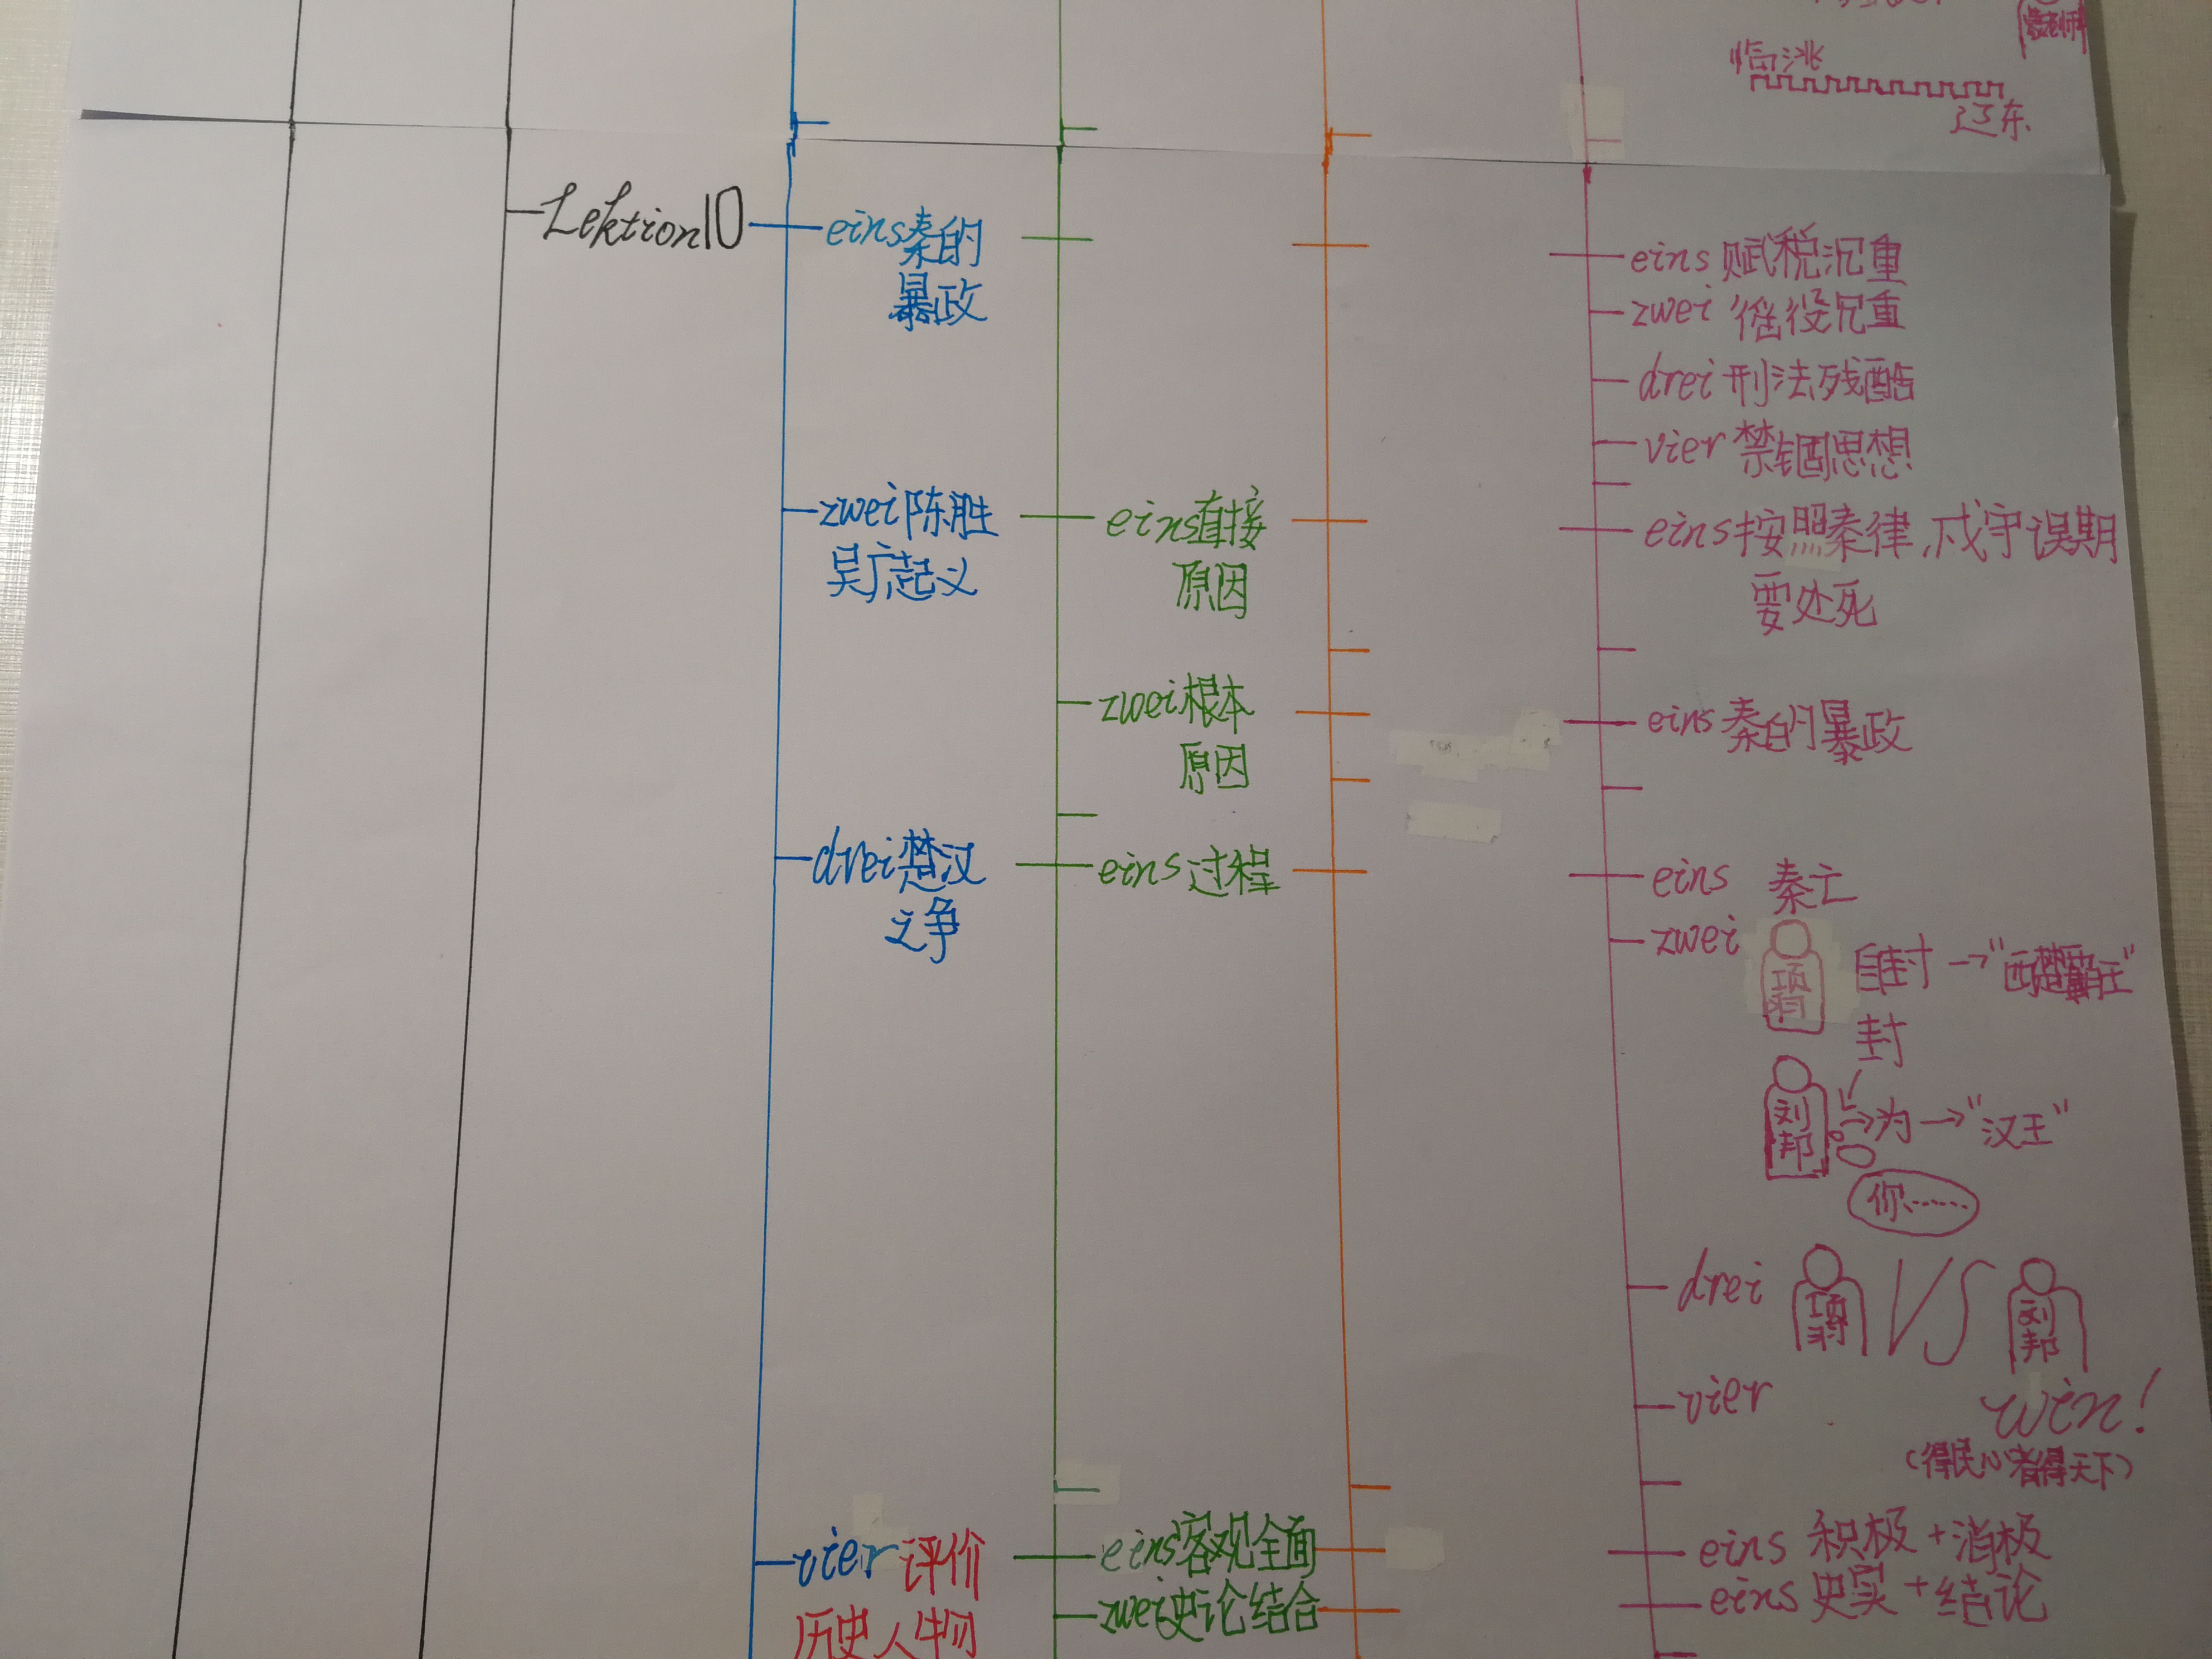 临洮
辽东
Lektion10
eins秦的
暴政
eins 赋税沉重
zwei 徭役沉重
drei 刑法残酷
vier 禁锢思想
zwei陈胜
吴广起义
eins直接
原因
eins按照秦律,戍守误期
要处死
zwei根本
原因
eins秦的暴政
drei楚汉
之争
eins过程
eins 秦亡
zwei
项羽
自封→"西楚霸王"
封
刘邦
为→"汉王"
你……
drei
项羽
VS
刘邦
vier
win!
(得民心者得天下)
vier评价
历史人物
eins客观全面
zwei史论结合
eins 积极+消极
eins 史实+结论